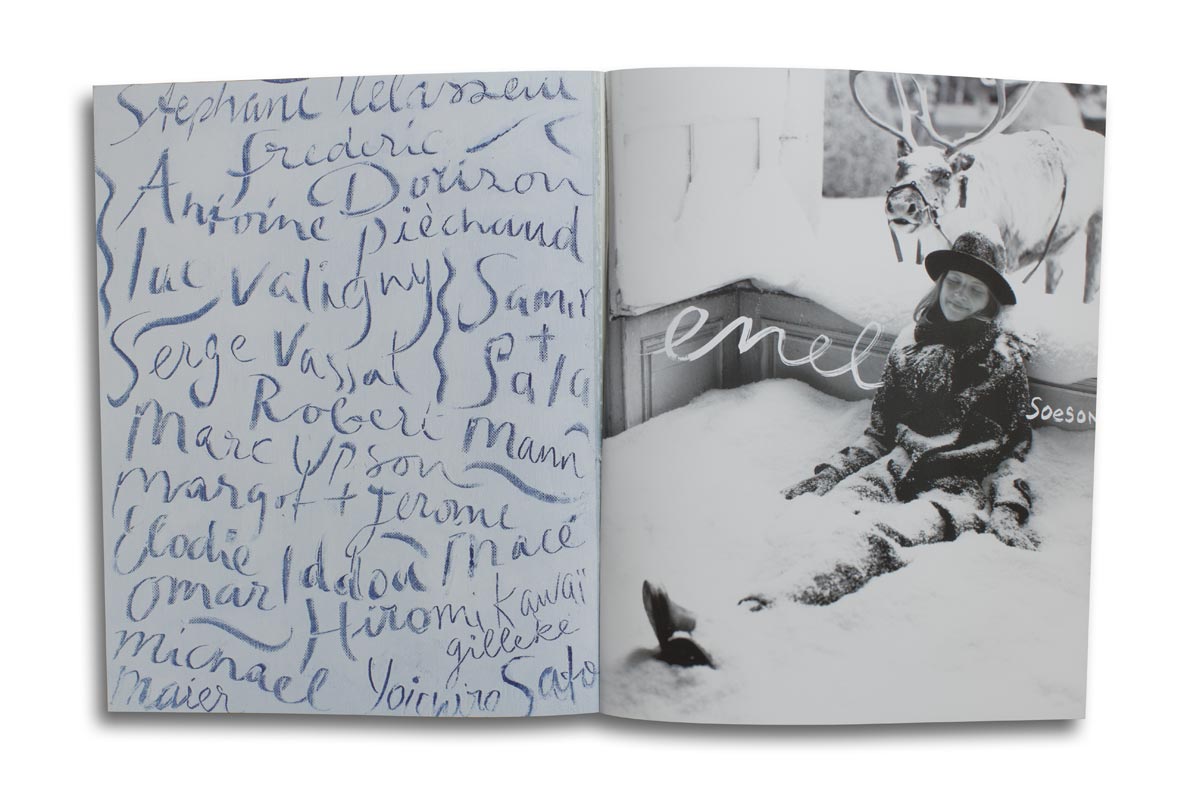 Stephane
frederic
Antoine Dorizon
pièchaud
luc Valigny
Samir
+
Sala
Serge Vassal
Robert Mann
Marc Ypson
Margot + Jerome
Elodie Macé
Omar Iddou
Hiromi Kawaï
gilleke
Michael
Maier
Yoichiro Sato
enel
Soeson